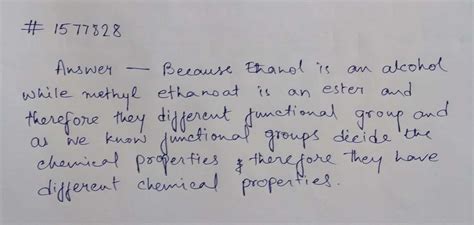 # 1577828
Answer — Because Ethanol is an alcohol
while methyl ethanoat is an ester and
therefore they different functional group and
as we know functional groups decide the
chemical properties & therefore they have
different chemical properties.